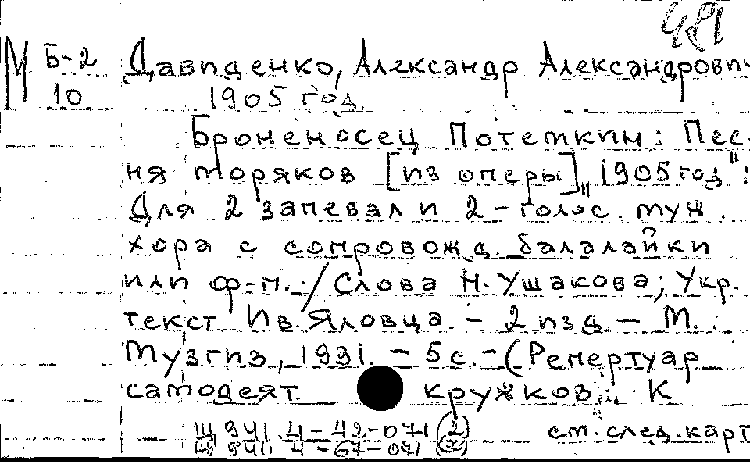 М Б-2 Давиденко, Александр Александрови-
10 1905 год.
Броненосец Потемкин: Пес-
ня моряков [из оперы] "1905 год":
Для 2 запевал и 2-голос. муж.
хора с сопровожд. балалайки
или ф-п. / Слова Н. Ушакова; Укр.
текст Ив. Яловца. - 2 изд - М.:
Музгиз, 1931. - 5 с. - (Репертуар
самодеят кружков. К
см. след. карт